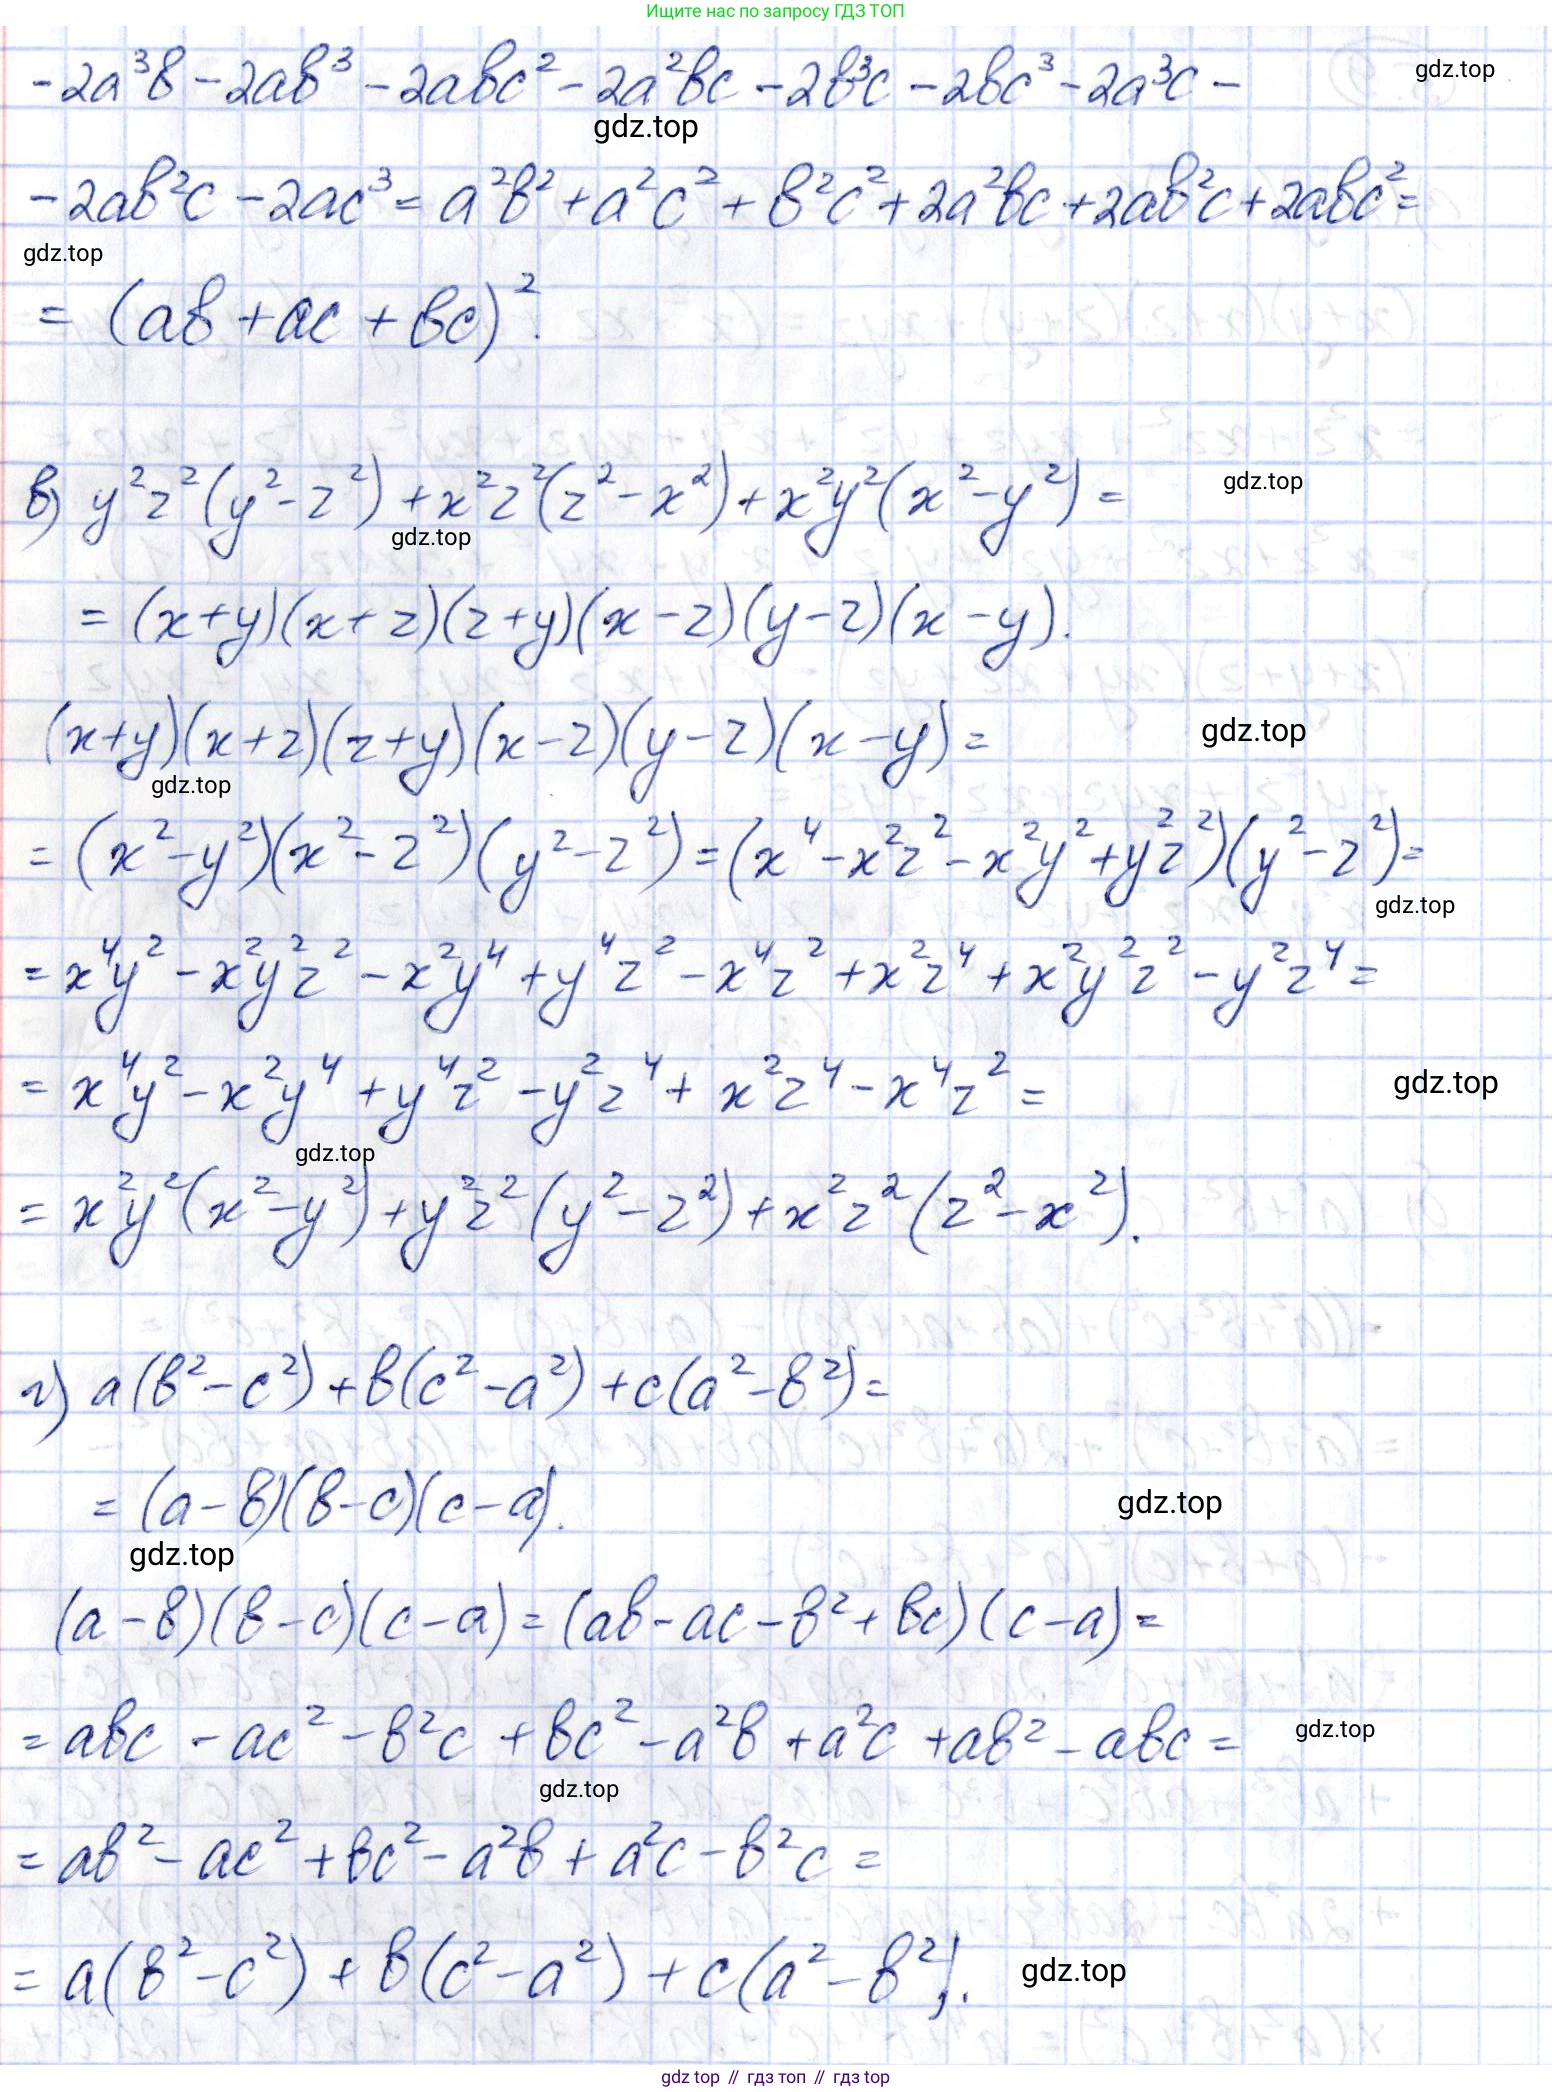 Ищите нас по запросу ГДЗ ТОП
-2a³b - 2ab³ - 2abc² - 2a²bc - 2b³c - 2bc³ - 2a³c -
gdz.top
gdz.top
-2ab²c - 2ac³ = a²b² + a²c² + b²c² + 2a²bc + 2ab²c + 2abc² =
gdz.top
= (ab + ac + bc)².
в) y²z²(y² - z²) + x²z²(z² - x²) + x²y²(x² - y²) =
gdz.top
gdz.top
= (x+y)(x+z)(z+y)(x-z)(y-z)(x-y).
(x+y)(x+z)(z+y)(x-z)(y-z)(x-y) =
gdz.top
gdz.top
= (x²-y²)(x²-z²)(y²-z²) = (x⁴ - x²z² - x²y² + y²z²)(y²-z²) =
gdz.top
= x⁴y² - x²y²z² - x²y⁴ + y⁴z² - x⁴z² + x²z⁴ + x²y²z² - y²z⁴ =
= x⁴y² - x²y⁴ + y⁴z² - y²z⁴ + x²z⁴ - x⁴z² =
gdz.top
gdz.top
= x²y²(x²-y²) + y²z²(y²-z²) + x²z²(z²-x²).
г) a(b²-c²) + b(c²-a²) + c(a²-b²) =
= (a-b)(b-c)(c-a).
gdz.top
gdz.top
(a-b)(b-c)(c-a) = (ab - ac - b² + bc)(c-a) =
= abc - ac² - b²c + bc² - a²b + a²c + ab² - abc =
gdz.top
gdz.top
= ab² - ac² + bc² - a²b + a²c - b²c =
= a(b²-c²) + b(c²-a²) + c(a²-b²).
gdz.top
gdz.top // гдз топ // гдз top